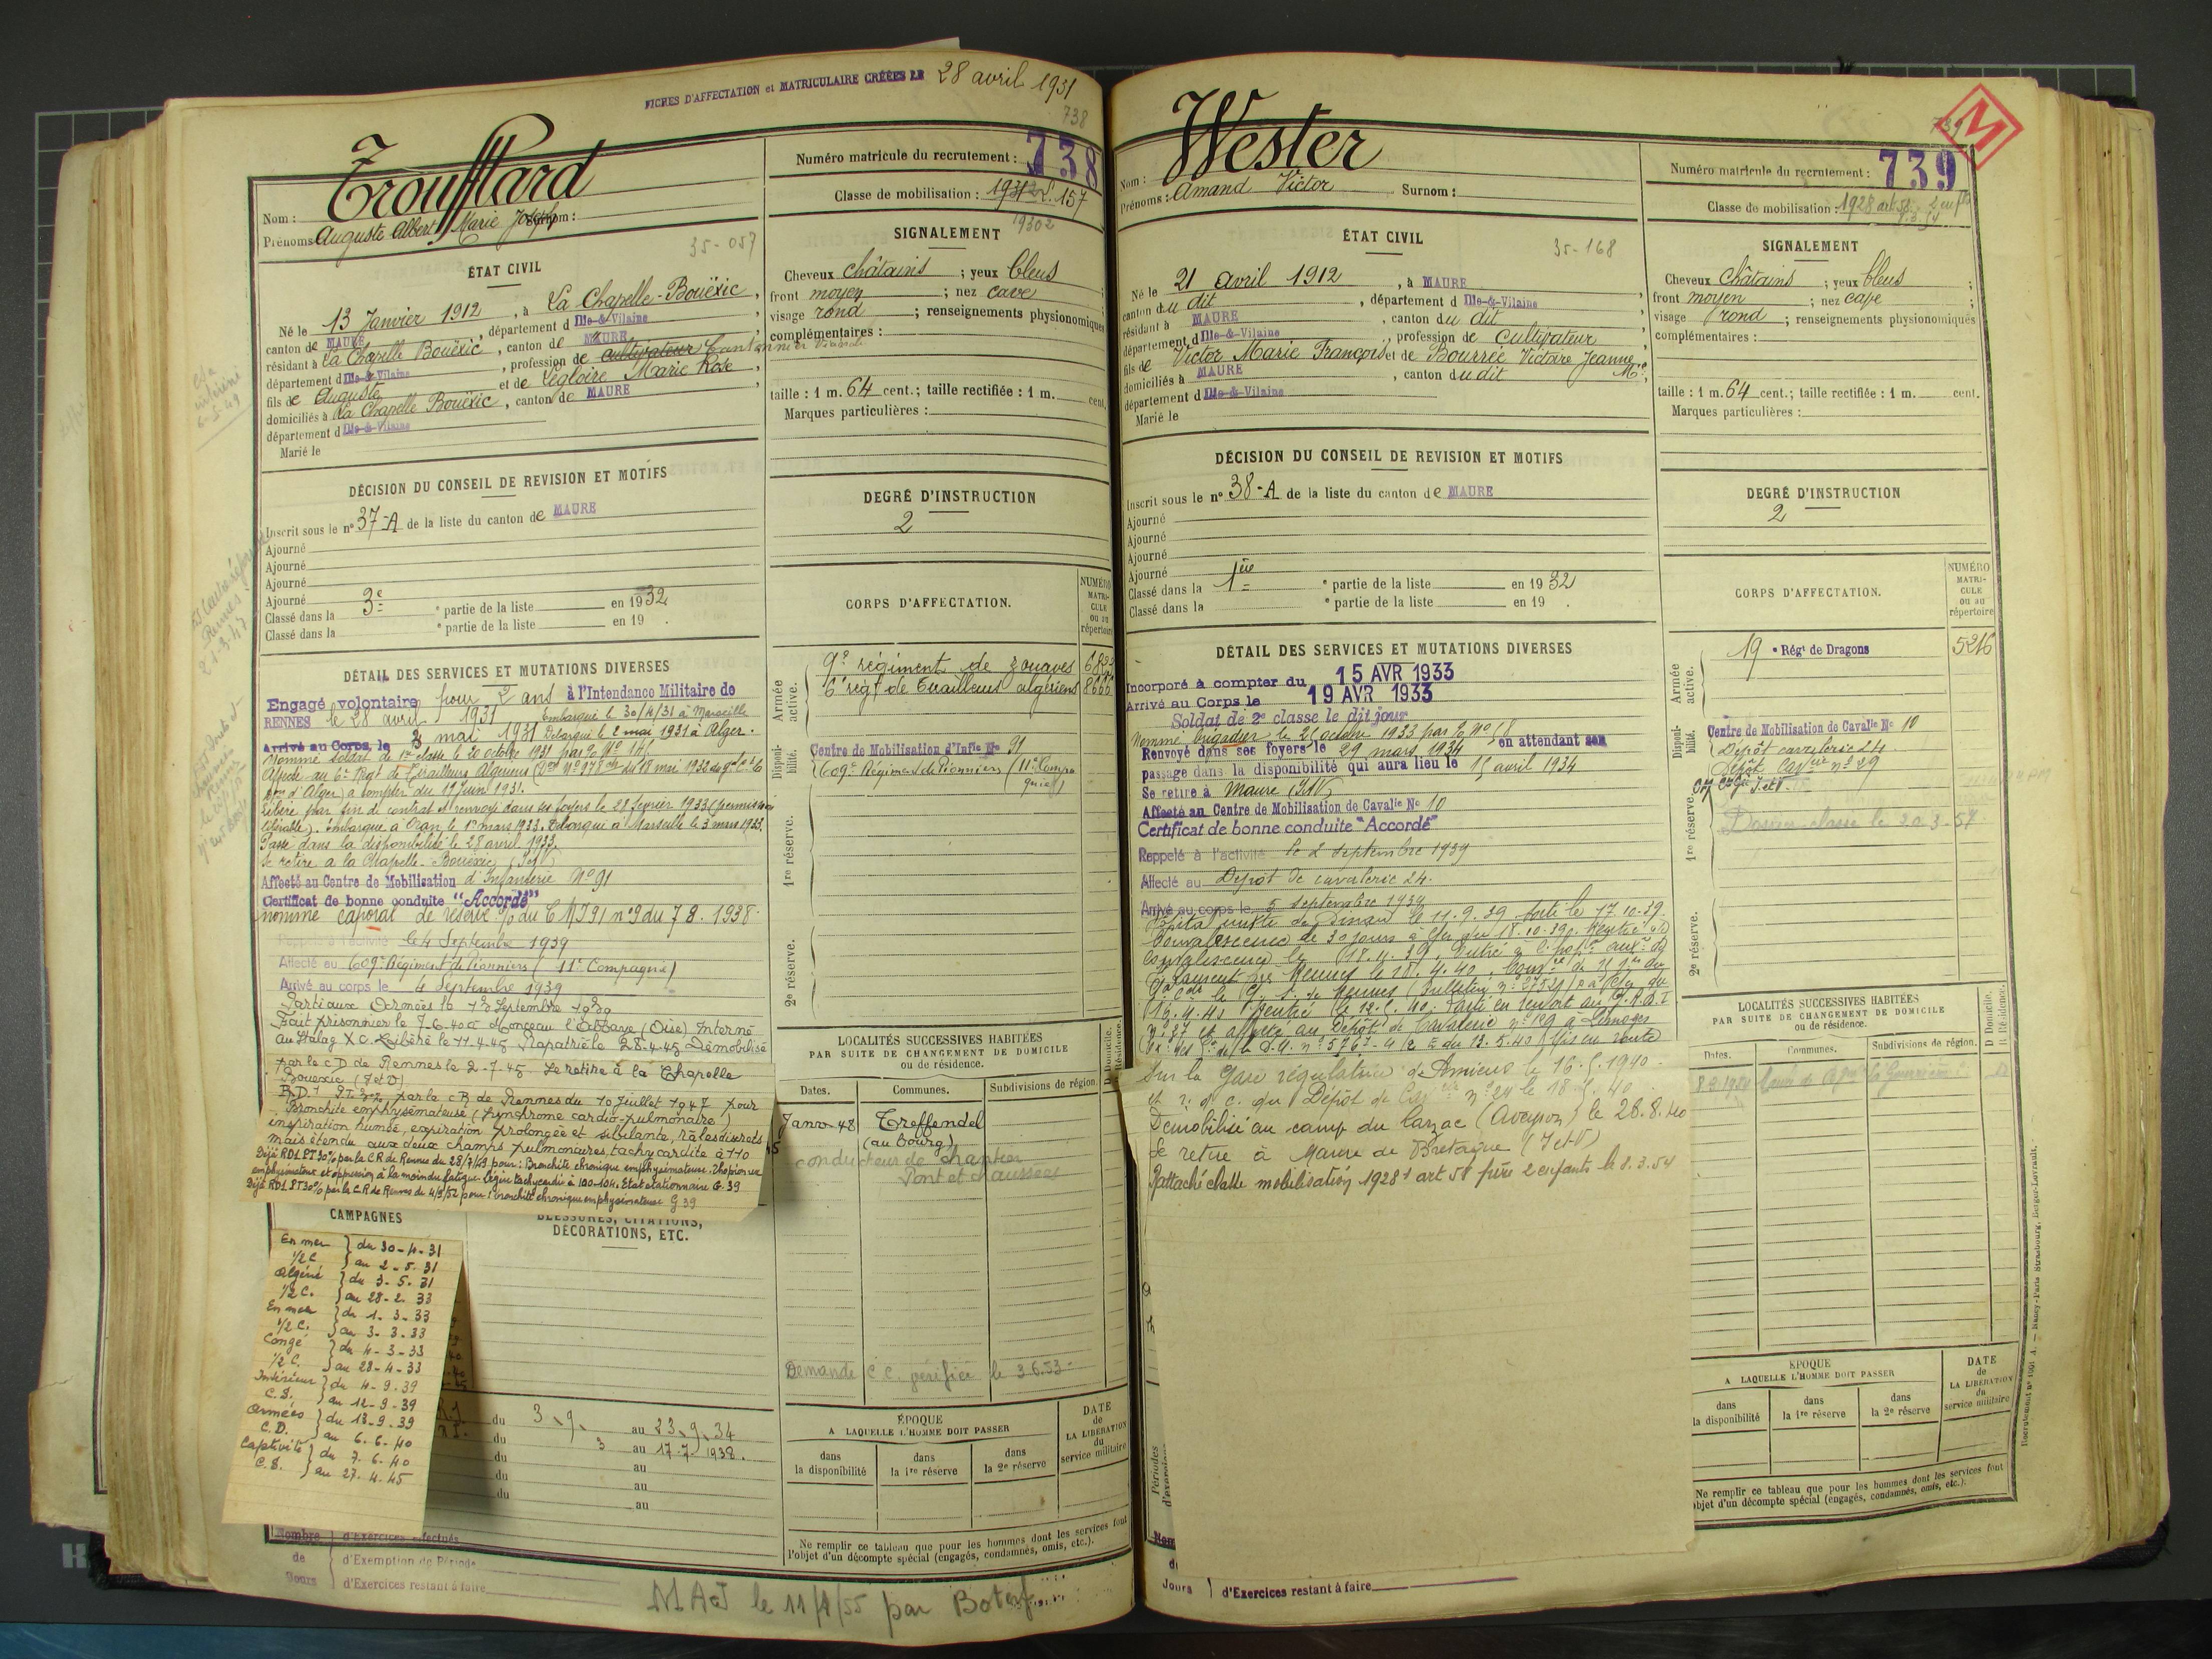 FICHES D'AFFECTATION et MATRICULAIRE CRÉÉES LE 28 avril 1931
738
Nom : Trouffflard
Prénoms Auguste Albert Marie Joseph Surnom :
Numéro matricule du recrutement : 738
Classe de mobilisation :
ÉTAT CIVIL
35-057
Né le 13 Janvier 1912, à La Chapelle-Bouëxic,
canton de MAURE, département d Ille-&-Vilaine
résidant à La Chapelle Bouëxic, canton de MAURE,
département d Ille-&-Vilaine, profession de cultivateur Cantonnier
fils de Auguste et de Legloire Marie Rose,
domiciliés à La Chapelle Bouëxic, canton de MAURE
département d Ille-&-Vilaine
Marié le
SIGNALEMENT
Cheveux châtains ; yeux bleus
front moyen ; nez cave
visage rond ; renseignements physionomiques
complémentaires :
taille : 1 m. 64 cent.; taille rectifiée : 1 m. cent.
Marques particulières :
DÉCISION DU CONSEIL DE REVISION ET MOTIFS
Inscrit sous le n° 37-A de la liste du canton de MAURE
Ajourné
Ajourné
Ajourné
Ajourné
Classé dans la 3e ° partie de la liste en 1932
Classé dans la ° partie de la liste en 19 .
DEGRÉ D'INSTRUCTION
2
DÉTAIL DES SERVICES ET MUTATIONS DIVERSES
Engagé volontaire pour 2 ans à l'Intendance Militaire de
RENNES le 28 avril 1931 Embarqué le 30/4/31 à Marseille
Arrivé au Corps, le 3 mai 1931 Débarqué le 2 mai 1931 à Alger.
Nommé soldat de 1re classe le 20 octobre 1931
Affecté au 6e Regt de Tirailleurs Algériens
à compter du 11 juin 1931.
Libéré par fin de contrat et renvoyé dans ses foyers le 28 février 1933 (permission
libérable). Embarqué à Oran le 1er mars 1933. Débarqué à Marseille le 3 mars 1933.
Passé dans la disponibilité le 28 avril 1933.
Se retire à la Chapelle-Bouëxic (I et V)
Affecté au Centre de Mobilisation d'Infanterie N° 91
Certificat de bonne conduite "Accordé"
nommé caporal de réserve 7 8. 1938.
Rappelé à l'activité le 4 Septembre 1939
Affecté au 609e Régiment de Pionniers (11e Compagnie)
Arrivé au corps le 4 Septembre 1939
Parti aux Armées le 13 Septembre 1939
Fait prisonnier le 7-6-40 à Monceau l'Abbaye (Oise) Interné
au Stalag X C. Libéré le 11-4-45 Rapatrié le 28-4-45 Démobilisé
par le CD de Rennes le 2-7-45 Se retire à la Chapelle
Bouexic (I et V)
par le CR de Rennes du 10 Juillet 1947 pour
Bronchite emphysémateuse (synchrome cardio-pulmonaire)
inspiration humée, expiration prolongée et sibilante, râles discrets
mais étendu aux deux champs pulmonaires tachycardite à 110
Déjà RD1 PT 30% par la CR de Rennes du 28/7/49 pour : Bronchite chronique emphysémateuse.
emphysémateux et oppression à la moindre fatigue. légère tachycardie à 100-104. Etat stationnaire G.39
Déjà RD1 PT 30% par la C.R de Rennes du 4/9/52 pour : bronchite chronique emphysémateuse G 39
CORPS D'AFFECTATION.
NUMÉRO MATRICULE ou au répertoire
Armée active.
9e régiment de zouaves
6e régt de Tirailleurs algériens 8666
Disponibilité.
Centre de Mobilisation d'Infie N° 91
609e Régiment de Pionniers (11e Compagnie)
1re réserve.
2e réserve.
LOCALITÉS SUCCESSIVES HABITÉES
PAR SUITE DE CHANGEMENT DE DOMICILE
ou de résidence.
Dates. Communes. Subdivisions de région.
D Domicile.
R Résidence.
Janv 48 Treffendel
(au bourg)
conducteur de chantier
Pont et chaussées
Demande C.C. vérifiée le 3.6.53-
CAMPAGNES
BLESSURES, CITATIONS,
DÉCORATIONS, ETC.
En mer } du 30-4-31
1/2 C } au 2-5-31
Algérie } du 3-5-31
1/2 C. } au 28-2-33
En mer } du 1-3-33
1/2 C. } au 3-3-33
Congé } du 4-3-33
1/2 C. } au 28-4-33
Intérieur } du 4-9-39
C.S. } au 12-9-39
Armées } du 13-9-39
C.D. } au 6-6-40
Captivité } du 7-6-40
C.S. } au 27-4-45
du 3.9. au 23.9.34
du 3 au 17-7-1938.
du au
du au
du au
ÉPOQUE
A LAQUELLE L'HOMME DOIT PASSER
DATE de LA LIBÉRATION du service militaire
dans la disponibilité
dans la 1re réserve
dans la 2e réserve
Ne remplir ce tableau que pour les hommes dont les services font
l'objet d'un décompte spécial (engagés, condamnés, omis, etc.).
Nombre de Jours
d'Exercices effectués
d'Exemption de Période
d'Exercices restant à faire
MAJ le 11/4/55 par
Nom : Wester
Prénoms : Amand Victor Surnom :
Numéro matricule du recrutement : 739
M
Classe de mobilisation : 1928
ÉTAT CIVIL
35-168
Né le 21 avril 1912, à MAURE
canton du dit, département d Ille-&-Vilaine
résidant à MAURE, canton du dit
département d Ille-&-Vilaine, profession de cultivateur
fils de Victor Marie François et de Bourrée Victoire Jeanne Mie,
domiciliés à MAURE, canton du dit
département d Ille-&-Vilaine
Marié le
SIGNALEMENT
Cheveux châtains ; yeux bleus ;
front moyen ; nez cave ;
visage rond ; renseignements physionomiques
complémentaires :
taille : 1 m. 64 cent.; taille rectifiée : 1 m. cent.
Marques particulières :
DÉCISION DU CONSEIL DE REVISION ET MOTIFS
Inscrit sous le n° 38-A de la liste du canton de MAURE
Ajourné
Ajourné
Ajourné
Ajourné
Classé dans la 1ère ° partie de la liste en 1932
Classé dans la ° partie de la liste en 19 .
DEGRÉ D'INSTRUCTION
2
DÉTAIL DES SERVICES ET MUTATIONS DIVERSES
Incorporé à compter du 15 AVR 1933
Arrivé au Corps le 19 AVR 1933
Soldat de 2e classe le dit jour
Nommé brigadier le octobre 1933
Renvoyé dans ses foyers le 29 mars 1934 en attendant son
passage dans la disponibilité qui aura lieu le 15 avril 1934
Se retire à Maure (I&V)
Affecté au Centre de Mobilisation de Cavalie N° 10
Certificat de bonne conduite "Accordé"
Rappelé à l'activité le 2 septembre 1939
Affecté au Dépôt de cavalerie 24.
Arrivé au corps le 5 septembre 1939
Hôpital mixte de Dinan le 11.9.39 Sorti le 17.10.39.
Convalescence de 30 jours à du 18.10.39. Rentré de
convalescence le 18.11.39. Entré à
St Laurent Rennes
au Dépôt de Cavalerie à Limoges
Mis en route
sur la Gare régulatrice d'Amiens le 16.5.1940
Démobilisé au camp du Larzac (Aveyron) le 28.8.40
Se retire à Maure de Bretagne (I et V)
Rattaché classe mobilisation 1928 art 58 père 2 enfants le 8.3.54
CORPS D'AFFECTATION.
NUMÉRO MATRICULE ou au répertoire
Armée active.
19e Régt de Dragons 5216
Disponibilité.
Centre de Mobilisation de Cavalie N° 10
Dépôt cavalerie 24
Dépôt Cavie n° 29
1re réserve.
Dossier classé le 20-3-57.
2e réserve.
LOCALITÉS SUCCESSIVES HABITÉES
PAR SUITE DE CHANGEMENT DE DOMICILE
ou de résidence.
Dates. Communes. Subdivisions de région.
D Domicile.
R Résidence.
ÉPOQUE
A LAQUELLE L'HOMME DOIT PASSER
DATE de LA LIBÉRATION du service militaire
dans la disponibilité
dans la 1re réserve
dans la 2e réserve
Ne remplir ce tableau que pour les hommes dont les services font
objet d'un décompte spécial (engagés, condamnés, omis, etc.).
Jours d'Exercices restant à faire
Nancy-Paris Strasbourg, Berger-Levrault.